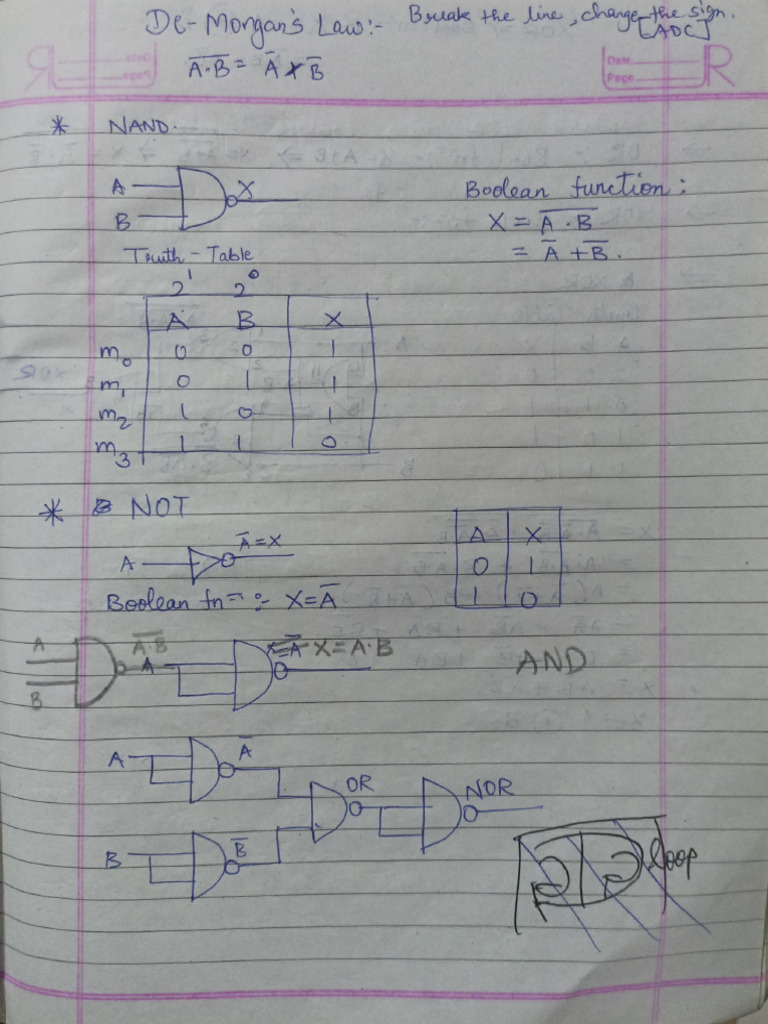 De-Morgan's Law:- Break the line, change the sign.
[ADC]
A̅·̅B̅ = A̅ + B̅
Date
Page
* NAND.
A
B
X
Boolean function:
X = A̅ ·̅ B̅
= A̅ + B̅.
Truth-Table
2¹ 2⁰
A B X
m₀ 0 0 1
m₁ 0 1 1
m₂ 1 0 1
m₃ 1 1 0
* NOT
A A̅=X
Boolean fn :- X=A̅
A X
0 1
1 0
A
B
A̅·̅B̅
A
X=A̅ X=A·B
AND
A A̅
B B̅
OR
NOR
loop